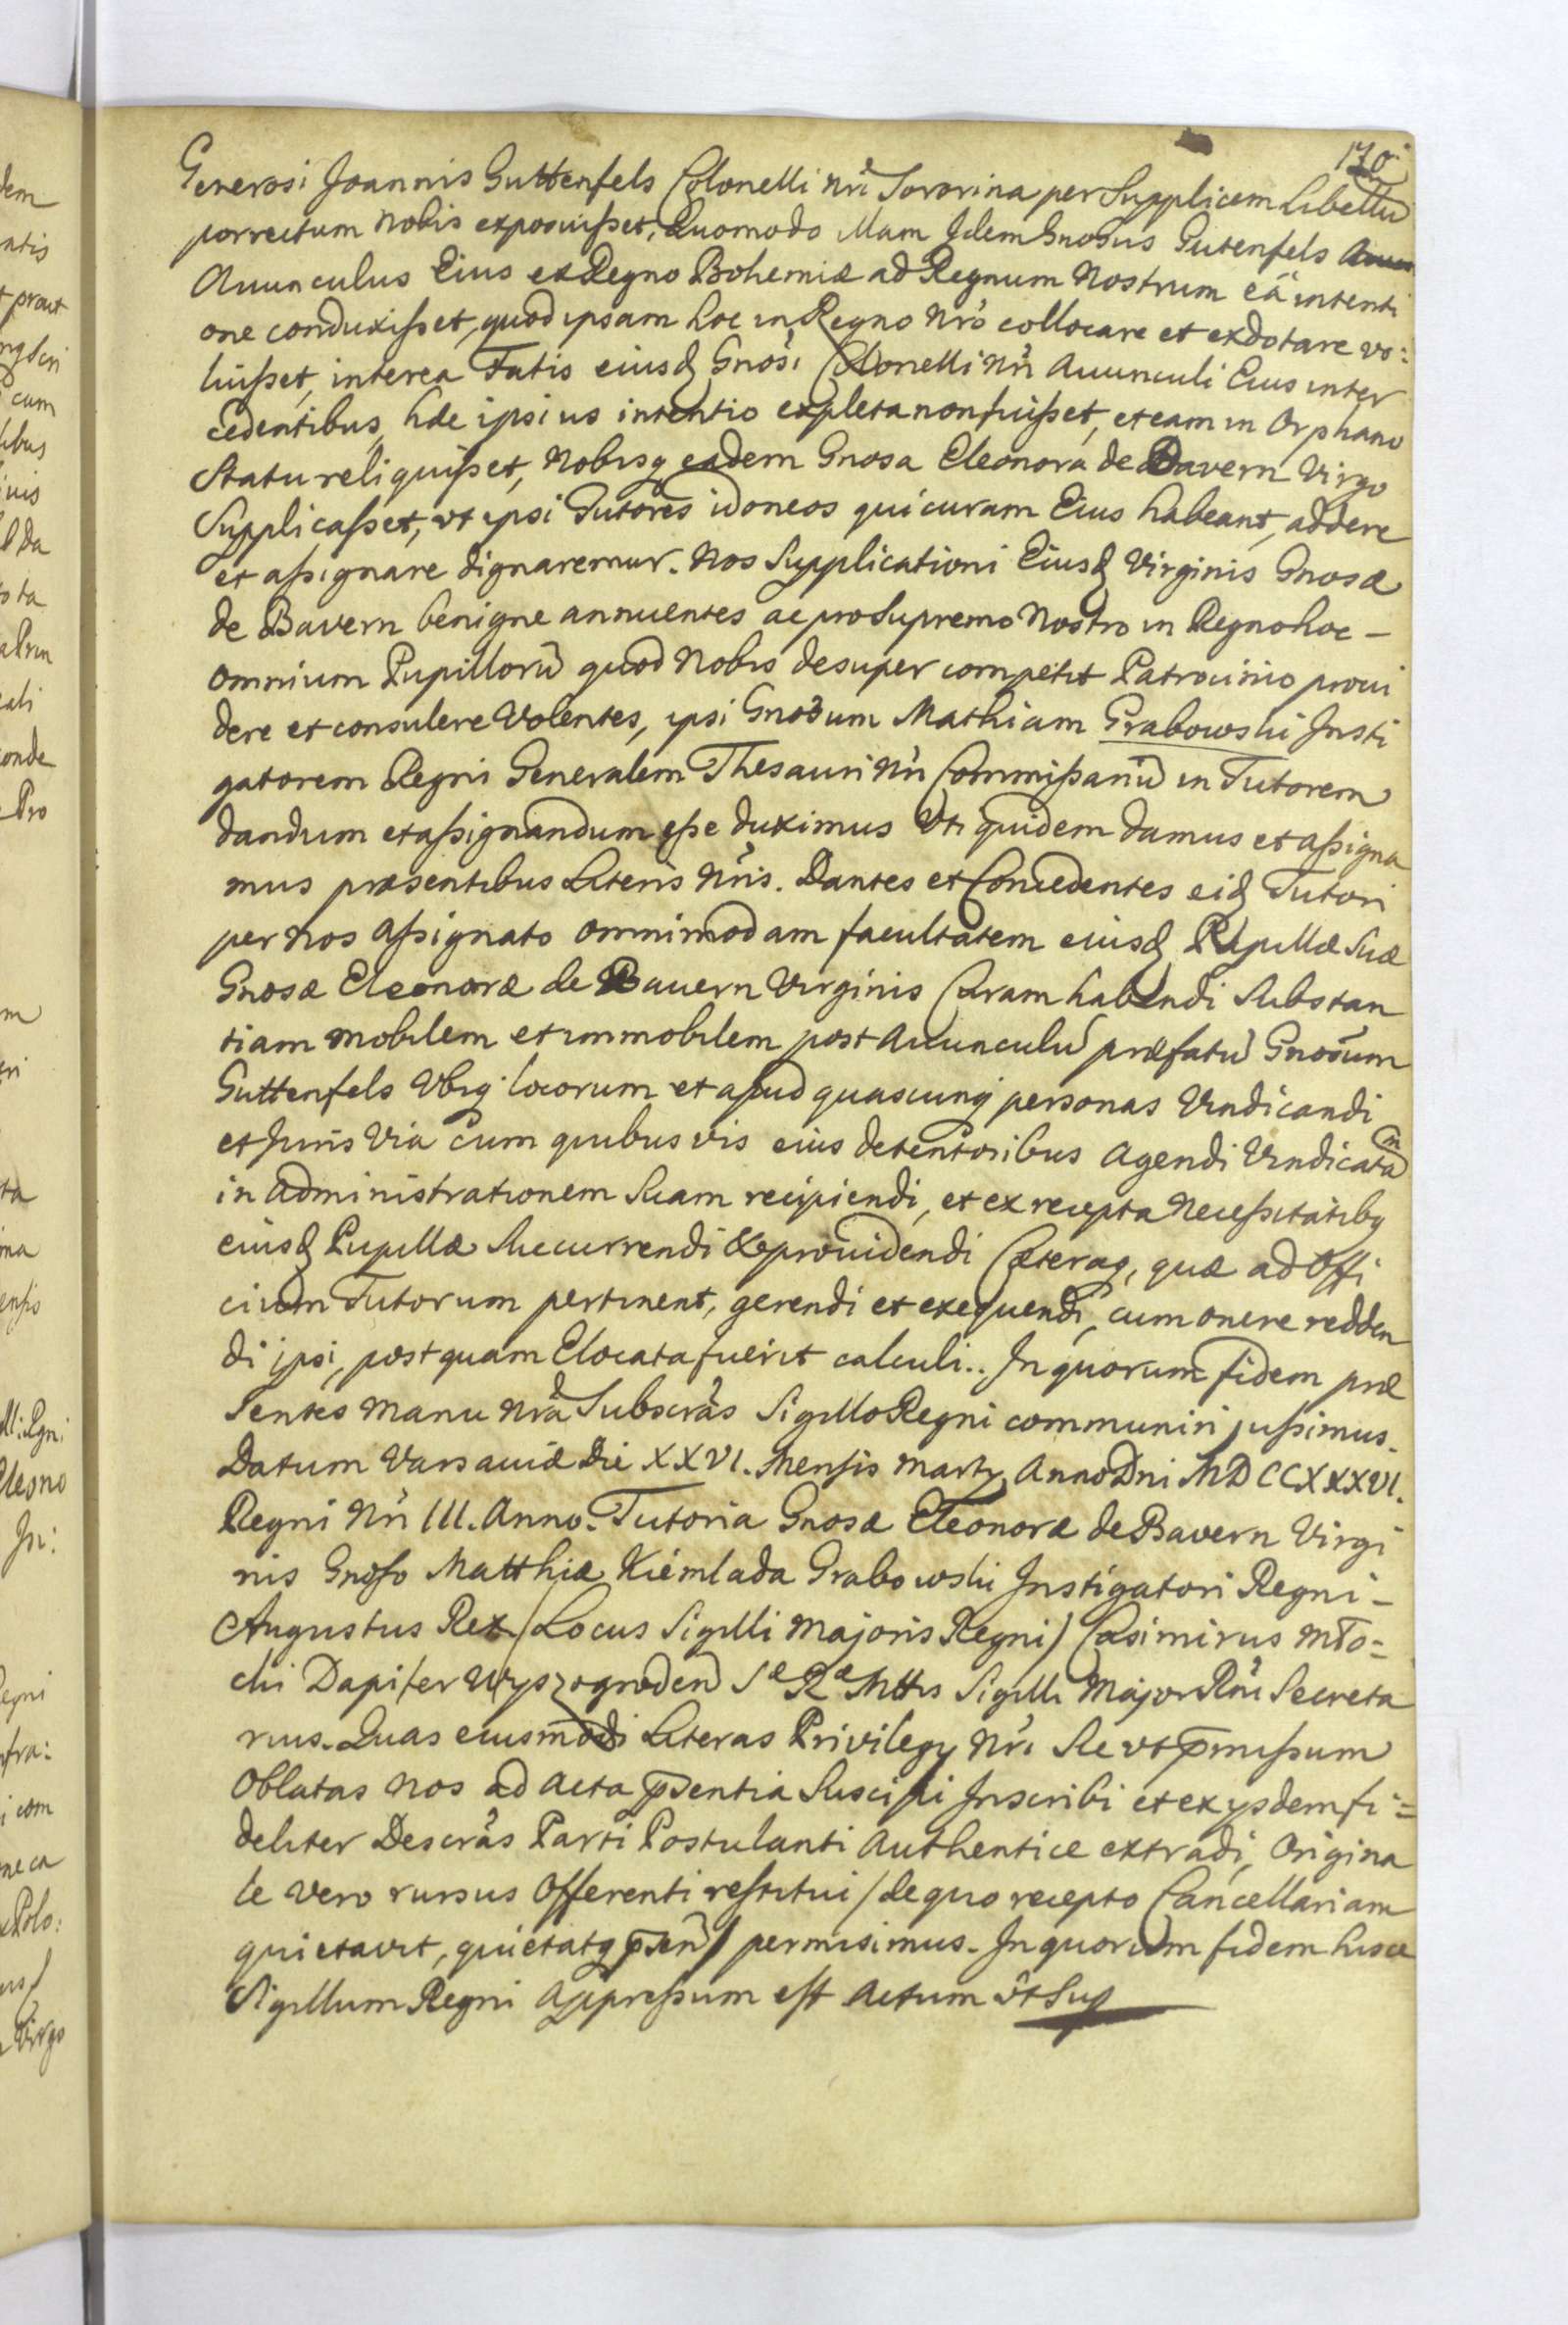 170
Generosi Joannis Guttenfels Colonelli nri Sororina per Supplicem Libellũ
porrectum nobis exposuisset, Quomodo illam Idem Gnosus Gutenfels
Avunculus Eius ex Regno Bohemiæ ad Regnum nostrum eâ intenti
one conduxisset, quod ipsam hoc in Regno nro collocare et exdotare vo:
luisset, interea Fatis eiusd Gnosi Colonelli nri Avunculi Eius inter
cedentibus, hæc ipsius intentio expleta non fuisset, et eam in Orphano
Statu reliquisset, nobisq eadem Gnosa Eleonora de Bavern Virgo
Supplicasset, vt ipsi Tutores idoneos qui curam Eius habeant, addere
et assignare dignaremur. Nos Supplicationi Eiusd Virginis Gnosæ
de Bavern benigne annuentes ac pro Supremo Nostro in Regno hoc –
omnium Pupillorũ quod Nobis desuper competit Patrocinio provi
dere et consulere Volentes, ipsi Gnosum Mathiam Grabowski Insti
gatorem Regni Generalem Thesauri nri Commissariũ in Tutorem
dandum et assignandum esse duximus Uti quidem damus et assigna
mus præsentibus Literis nris. Dantes et Concedentes eid Tutori
per nos assignato omnimodam facultatem eiusd Pupillæ Suæ
Gnosæ Eleonoræ de Bauern Virginis Curam habendi Substan
tiam mobilem et immobilem post Avunculũ præfatũ Gnosum
Guttenfels Vbiq locorum et apud quascunq personas Vindicandi
et Juris Via cum quibusvis eius detentoribus Agendi Vindicatam
in administrationem Suam recipiendi, et ex recepta necessitatibq
eiusd Pupillæ Succurrendi & providendi Cæteraq, quæ ad Offi
cium Tutorum pertinent, gerendi et exequendi, cum onere redden
di ipsi, postquam Elocata fuerit calculi.. In quorum fidem præ
sentes manu nra Subscras Sigillo Regni communiri jussimus.
Datum Varsaviæ Die XXVI. Mensis Martij Anno Dni MDCCXXXVI.
Regni Nri III. Anno. Tutoria Gnosæ Eleonoræ de Bavern Virgi
nis Gnoso Matthiæ Kiemlada Grabowski Instigatori Regni –
Augustus Rex (Locus Sigilli Majoris Regni) Casimirus Mło=
cki Dapifer Wyszogroden Sæ Ræ Mttis Sigilli Major Rni Secreta
rius. Quas eiusmodi Literas Privilegij Nri Sic vt pmissum
Oblatas nos ad Acta psentia Suscipi Inscribi et ex ijsdem fi=
deliter Descras Parti Postulanti Authentice extradi, Origina
le vero rursus Offerenti restitui / de quo recepto Cancellariam
quietavit, quietatq psen / permisimus. In quorum fidem hisce
Sigillum Regni appressum est Actum vt Sup